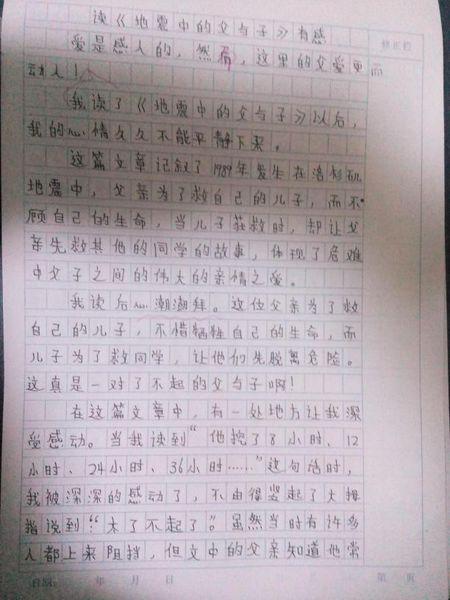 读《地震中的父与子》有感
爱是感人的，然而，这里的父爱更而
动人！
我读了《地震中的父与子》以后，
我的心情久久不能平静下来。
这篇文章记叙了1989年发生在洛杉矶
地震中，父亲为了救自己的儿子，而不
顾自己的生命，当儿子获救时，却让父
亲先救其他的同学的故事，体现了危难
中父子之间的伟大的亲情之爱。
我读后心潮潮拜。这位父亲为了救
自己的儿子，不惜牺牲自己的生命，而
儿子为了救同学，让他们先脱离危险。
这真是一对了不起的父与子啊！
在这篇文章中，有一处地方让我深
受感动。当我读到“他挖了8小时、12
小时、24小时、36小时……”这句话时，
我被深深的感动了，不由得竖起了大拇
指说到“太了不起了”。虽然当时有许多
人都上来阻挡，但文中的父亲知道他常
日期： 年 月 日 第 页